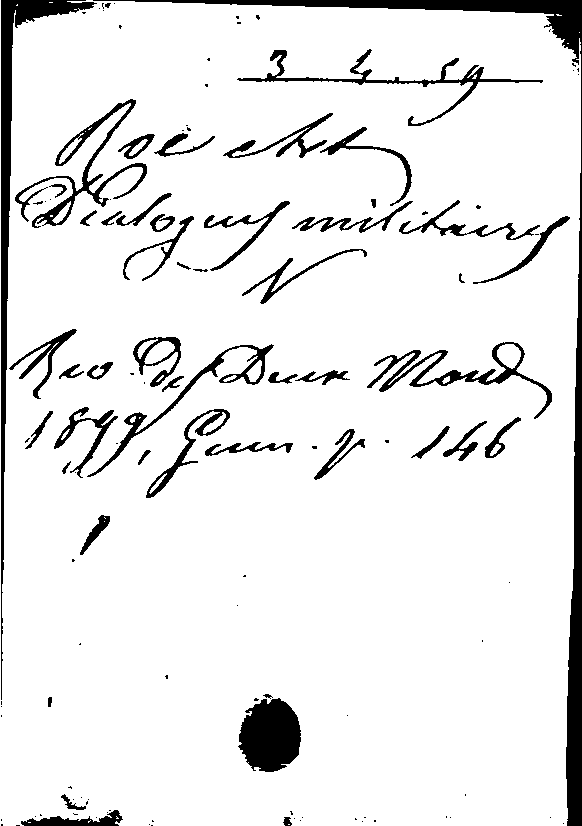 3 4. 59
Roë Art
Dialogues militaires
N
Rev des Deux Mond
1899, p. 146